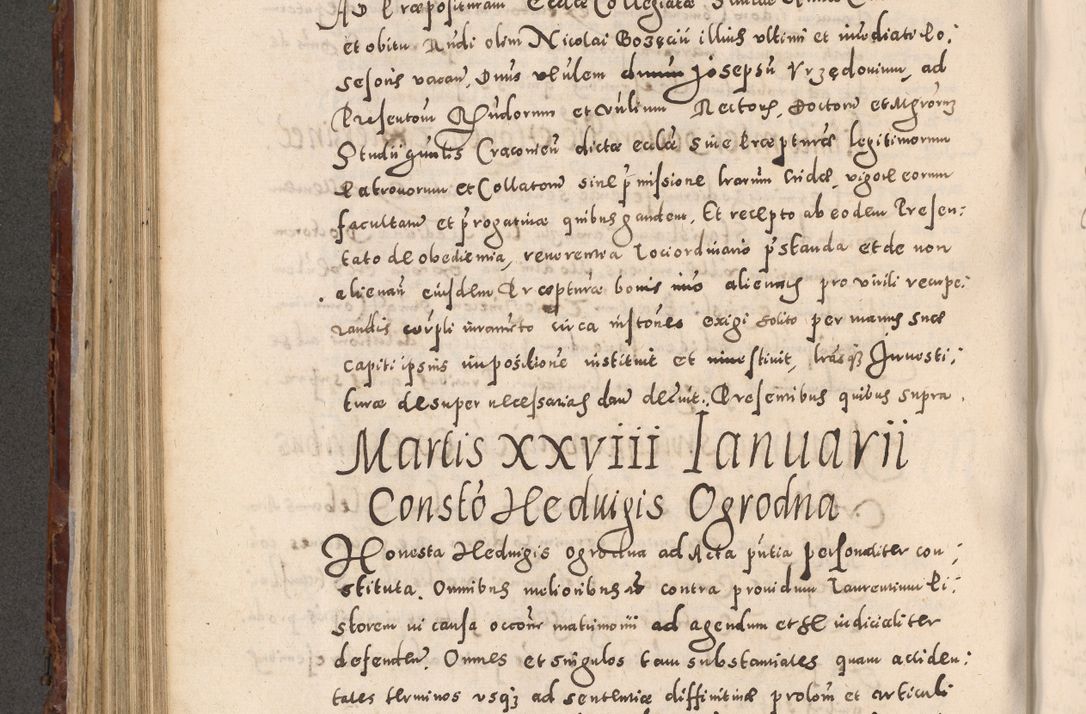 Ad Præposituram Eccæ Collegiatæ
et obitu Rndi olim Nicolai Bozęcii illius vltimi et imediati Po:
sesoris vacan. Dnus vl ulem Josepsu Vrzędovium, ad
Presentoem Rndorum et Rectoris, Doctorum et Mgrorum
Studii gnalis Cracovien dictæ ecclæ sive Præpturæ legitimorum
Patronorum et Collatorum sine pmissione lrarum Cridæ, vigore eorum
facultatum et progativæ quibus gaudent. Et recepto ab eodem Presen:
tato de obedientia, reverentia Lociordinario pstanda et de non
alienan eiusdem Præpturæ bonis imo alienatis pro virili recupe:
randis corpli iuramto circa exigi solito per manus suæ
capiti ipsius impositione instituit et investivit, lrasq3 Investi:
turæ desuper necessarias dan decrevit. Presentibus quibus supra.
Martis XXVIII Ianuarii
Consto Heduigis Ogrodna
Honesta Heduigis Ogrodna ad Acta pntia personaliter con:
stituta. Omnibus melioribus contra providum Laurentium Pi:
storem in causa occone matrimonii ad agendum et se iudicialiter
defenden. Omnes et singulos tam substantiales quam acciden:
tales terminos usq3 ad sententiæ diffinitivæ prolom et articuli